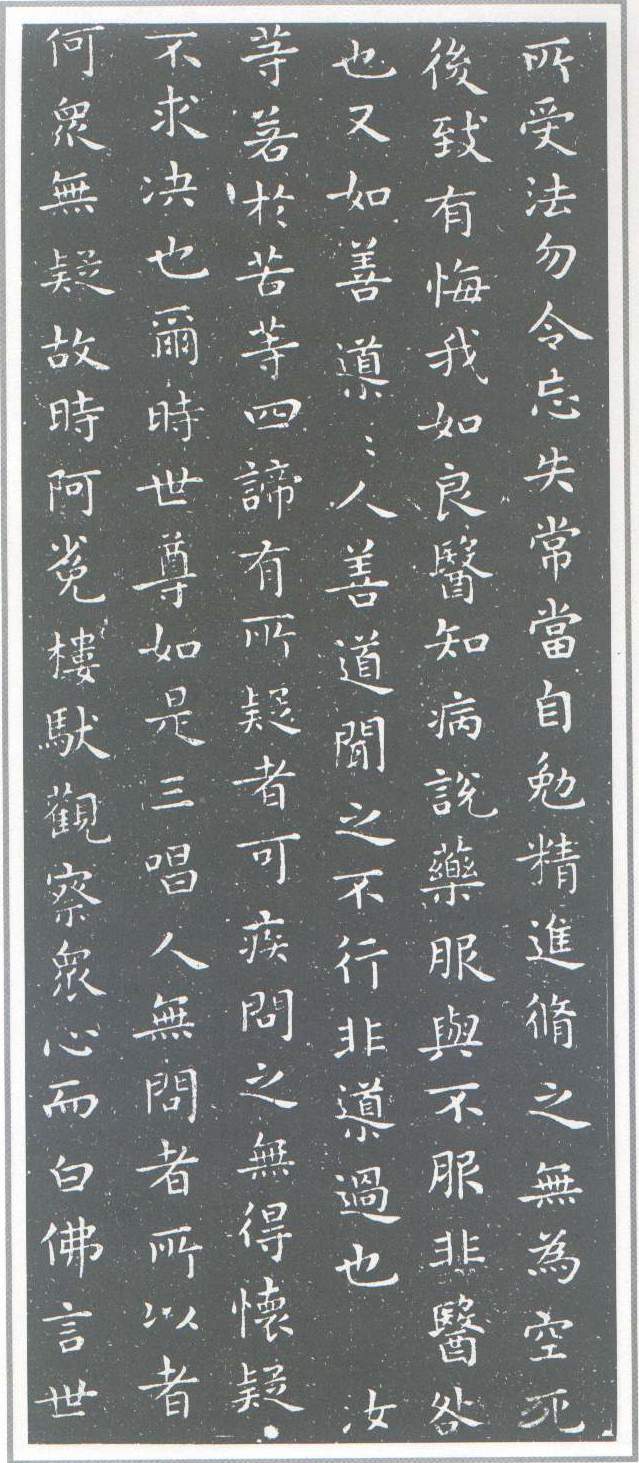 所受法勿令忘失常當自勉精進脩之無為空死
後致有悔我如良醫知病說藥服與不服非醫咎
也又如善導〻人善道聞之不行非導過也 汝
等若於苦等四諦有所疑者可疾問之無得懷疑
不求决也爾時世尊如是三唱人無問者所以者
何眾無疑故時阿㝹樓馱觀察眾心而白佛言世